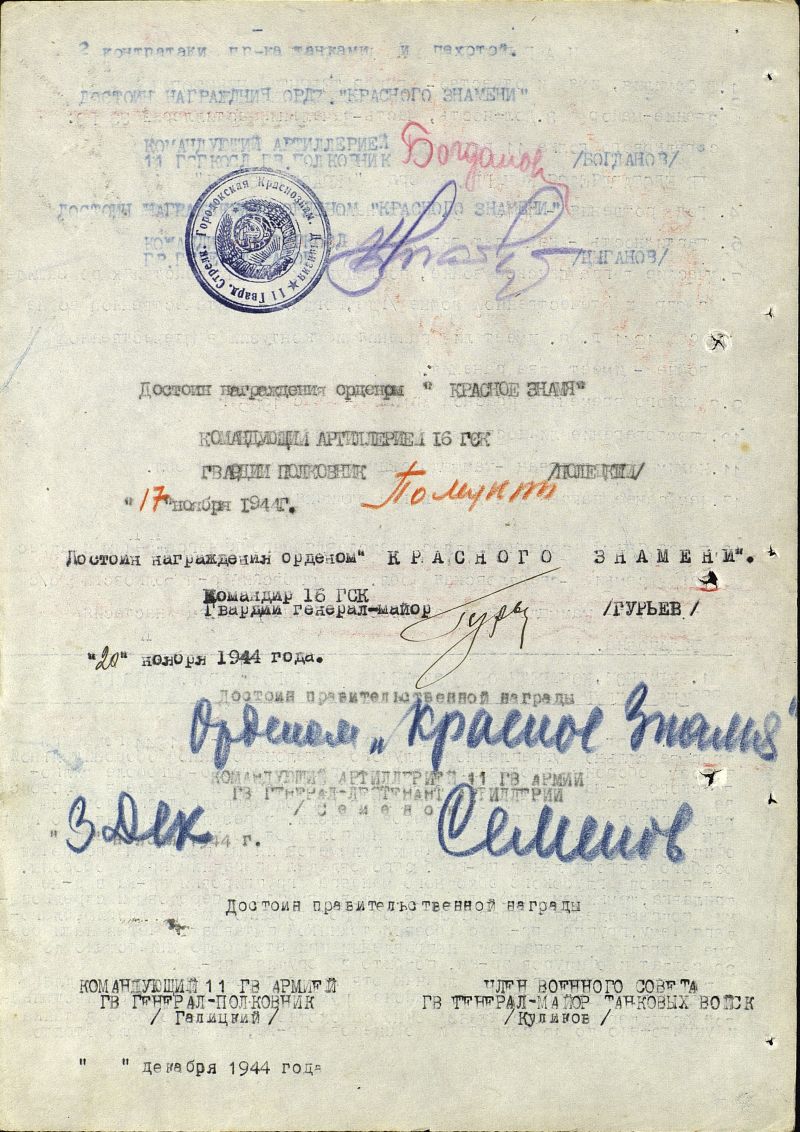 2 контратаки пр-ка танками и пехотой.
ДОСТОИН НАГРАЖДНИЯ ОРД. "КРАСНОГО ЗНАМЕНИ"
КОМАНДУЮЩИЙ АРТИЛЛЕРИЕЙ
11 ГГКОСД ГВ.ПОЛКОВНИК Богданов /БОГДАНОВ/
11 Гвард. Стрелк. Городокская Краснознам. Дивизия
"КРАСНОГО ЗНАМЕНИ"
/ЦЫГАНОВ/
Достоин награждения орденом " КРАСНОЕ ЗНАМЯ"
КОМАНДУЮЩИЙ АРТИЛЛЕРИЕЙ 16 ГСК
ГВАРДИИ ПОЛКОВНИК /ПОЛЕЦКИЙ/
"17"ноября 1944г.
Достоин награждения орденом" КРАСНОГО ЗНАМЕНИ".
Командир 16 ГСК
Гвардии генерал-майор /ГУРЬЕВ/
"20" ноября 1944 года.
Достоин правительственной награды
Орденом „Красное Знамя"
КОМАНДУЮЩИЙ АРТИЛЛЕРИЕЙ 11 ГВ АРМИИ
ГВ ГЕНЕРАЛ-ЛЕЙТЕНАНТ АРТИЛЛЕРИИ
/Семенов
3 Дек 1944 г. Семенов
Достоин правительственной награды
КОМАНДУЮЩИЙ 11 ГВ АРМИЕЙ
ГВ ГЕНЕРАЛ-ПОЛКОВНИК
/Галицкий/
ЧЛЕН ВОЕННОГО СОВЕТА
ГВ ГЕНЕРАЛ-МАЙОР ТАНКОВЫХ ВОЙСК
/Куликов /
" " декабря 1944 года